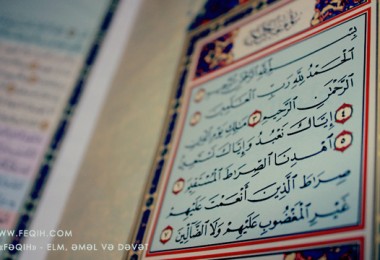 بِسْمِ ٱللَّهِ ٱلرَّحْمَٰنِ ٱلرَّحِيمِ
ٱلْحَمْدُ لِلَّهِ رَبِّ ٱلْعَٰلَمِينَ
ٱلرَّحْمَٰنِ ٱلرَّحِيمِ ٣ مَٰلِكِ يَوْمِ ٱلدِّينِ
٤ إِيَّاكَ نَعْبُدُ وَإِيَّاكَ نَسْتَعِينُ
٥ ٱهْدِنَا ٱلصِّرَٰطَ ٱلْمُسْتَقِيمَ
صِرَٰطَ ٱلَّذِينَ أَنْعَمْتَ عَلَيْهِمْ
غَيْرِ ٱلْمَغْضُوبِ عَلَيْهِمْ وَلَا ٱلضَّآلِّينَ
WWW.FEQIH.COM
«FƏQIH» - ELM, ƏMƏL VƏ DƏVƏT